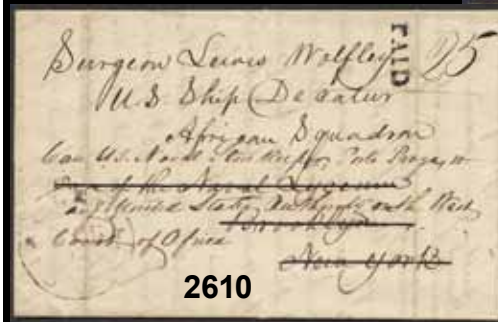 PAID 25
Surgeon Lewis Wolfley
U S Ship Decatur
African Squadron
Care U.S. Naval Store Keeper, Porto Praya, or
Care of the Naval Lyceum
any United States Authority on the West
Brooklyn
Coast of Africa
New York
2610